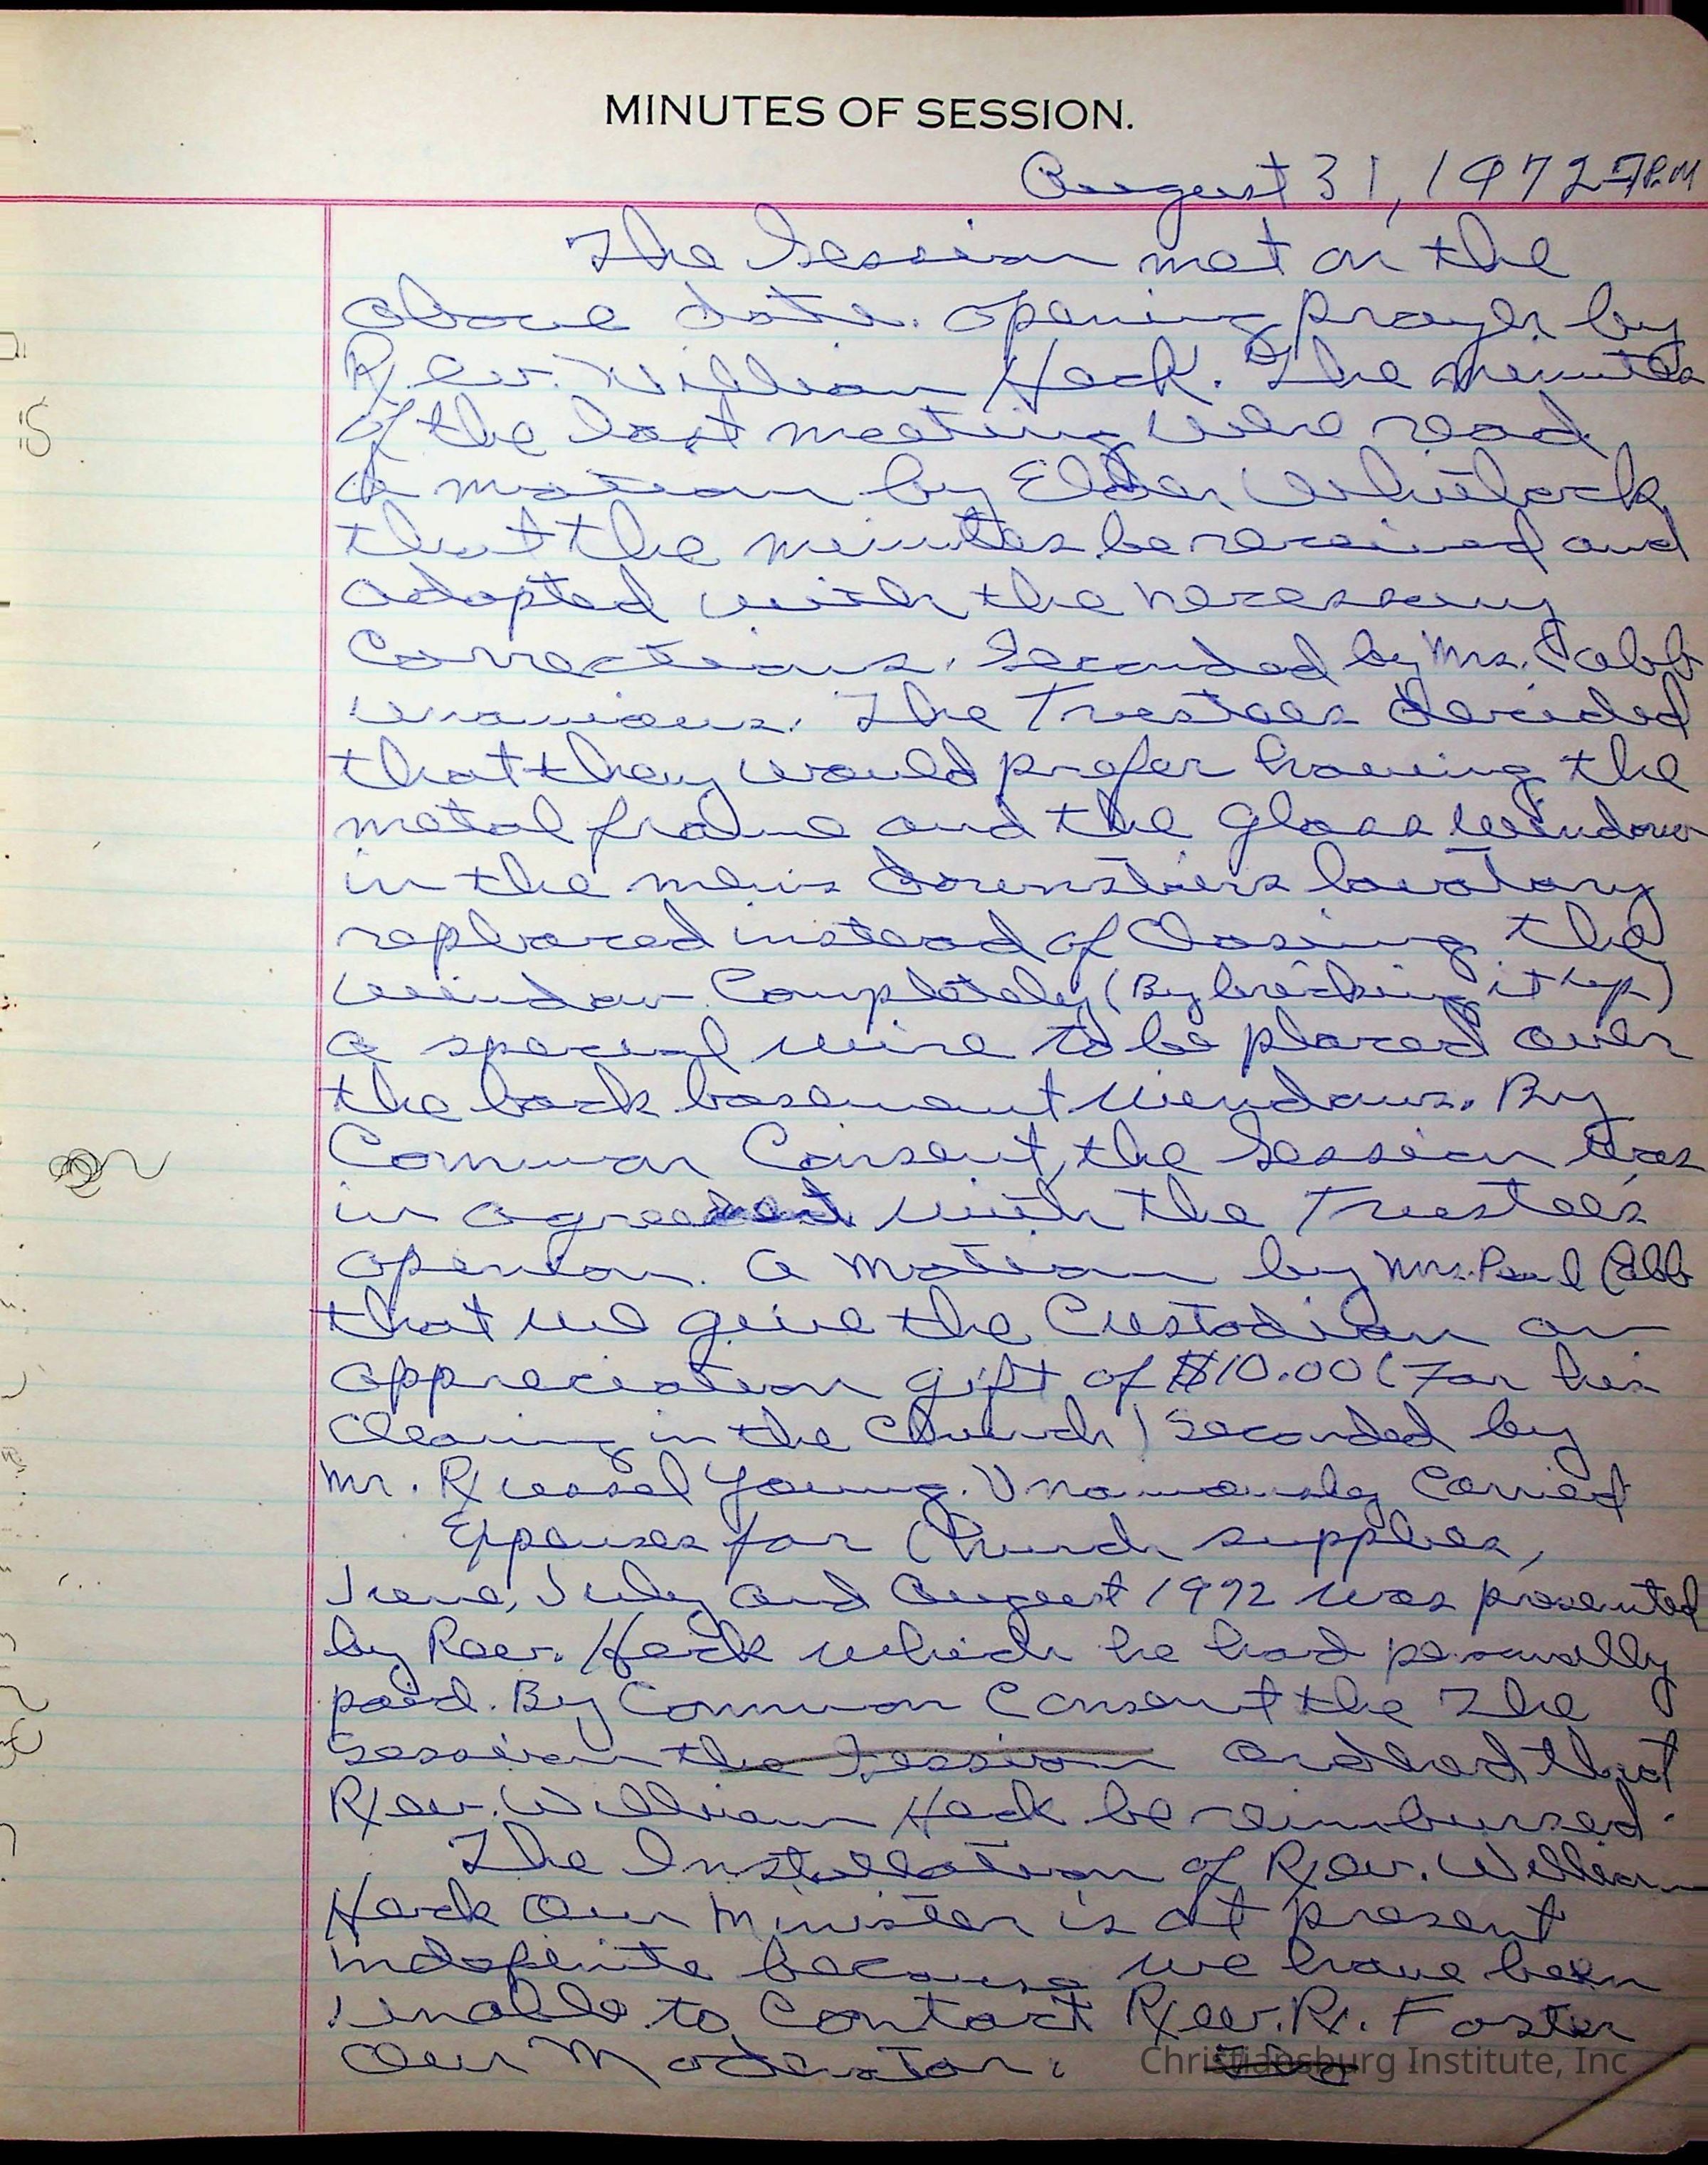 MINUTES OF SESSION.
August 31, 1972 7P.M
The Session met on the
above date. opening prayer by
Rev. William Heck. The minutes
of the last meeting were read
a motion by Elder Whitlock
that the minutes be received and
adopted with the necessary
Corrections. Seconded by Mrs. Cobb
The Trustees decided
that they would prefer having the
metal frame and the glass window
in the men's downstiers lavatory
replaced instead of Closing the
window Completely (By bricking it up)
a special wire to be placed over
the back basement windows. By
Common Consent, the Session was
in agreement with the Trustee's
openion. a motion by Mrs. Pearl Cobb
that we give the Custodian an
appreciation gift of $10.00 (For his
Cleaning in the Church) Seconded by
Mr. Russel Young. Unamously Carried
Expenses for Church supplies,
June, July and August 1972 was presented
by Rev. Heck which he had personally
paid. By Common Consent the The
Session the Session ordered that
Rev. William Heck be reimbursed.
The Installation of Rev. William
Heck Our Minister is at present
indefinite because we have been
unable to Contact Rev. R. Foster
Our Moderator.
Christiansburg Institute, Inc